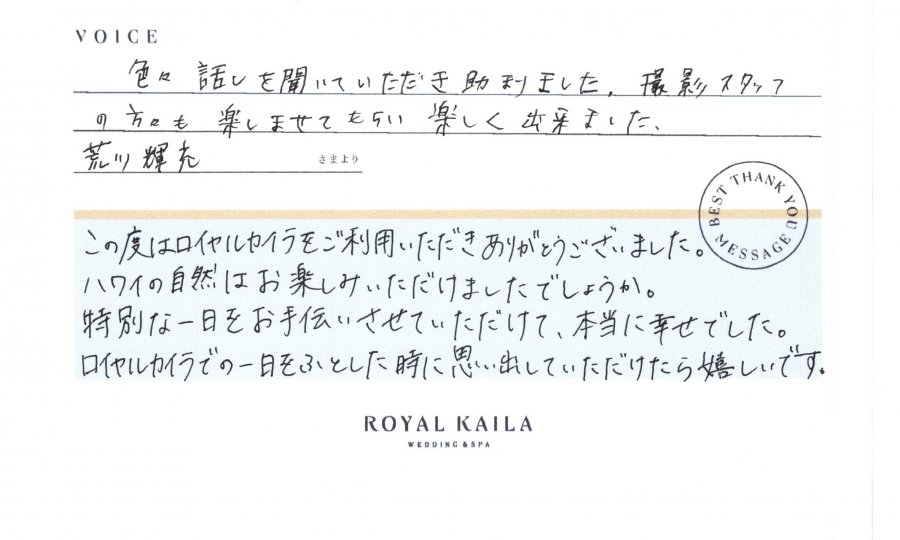 VOICE
色々 話しを聞いていただき助かりました。撮影スタッフ
の方々も 楽しませてもらい 楽しく出来ました、
荒川輝充 さまより
BEST THANK YOU MESSAGE
この度はロイヤルカイラをご利用いただきありがとうございました。
ハワイの自然はお楽しみいただけましたでしょうか。
特別な一日をお手伝いさせていただけて、本当に幸せでした。
ロイヤルカイラでの一日をふとした時に思い出していただけたら嬉しいです。
ROYAL KAILA
WEDDING & SPA